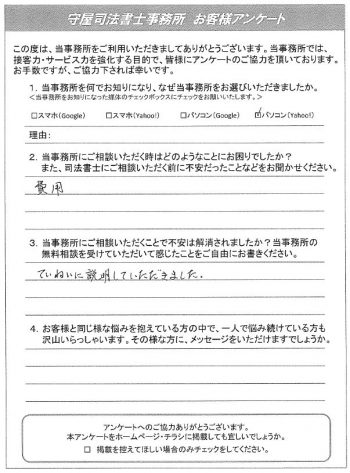 守屋司法書士事務所 お客様アンケート
この度は、当事務所をご利用いただきましてありがとうございます。当事務所では、
接客力・サービス力を強化する目的で、皆様にアンケートのご協力を頂いております。
お手数ですが、ご協力下されば幸いです。
1. 当事務所を何でお知りになり、なぜ当事務所をお選びいただきましたか。
<当事務所をお知りになった媒体のチェックボックスにチェックをお願いいたします。>
□スマホ(Google) □スマホ(Yahoo!) □パソコン(Google) ☑パソコン(Yahoo!)
理由:
2. 当事務所にご相談いただく時はどのようなことにお困りでしたか?
また、司法書士にご相談いただく前に不安だったことなどをお聞かせください。
費用
3. 当事務所にご相談いただくことで不安は解消されましたか?当事務所の
無料相談を受けていただいて感じたことをご自由にお書きください。
ていねいに説明していただきました.
4. お客様と同じ様な悩みを抱えている方の中で、一人で悩み続けている方も
沢山いらっしゃいます。その様な方に、メッセージをいただけますでしょうか。
アンケートへのご協力ありがとうございます。
本アンケートをホームページ・チラシに掲載しても宜しいでしょうか。
□ 掲載を控えてほしい場合のみチェックをしてください。